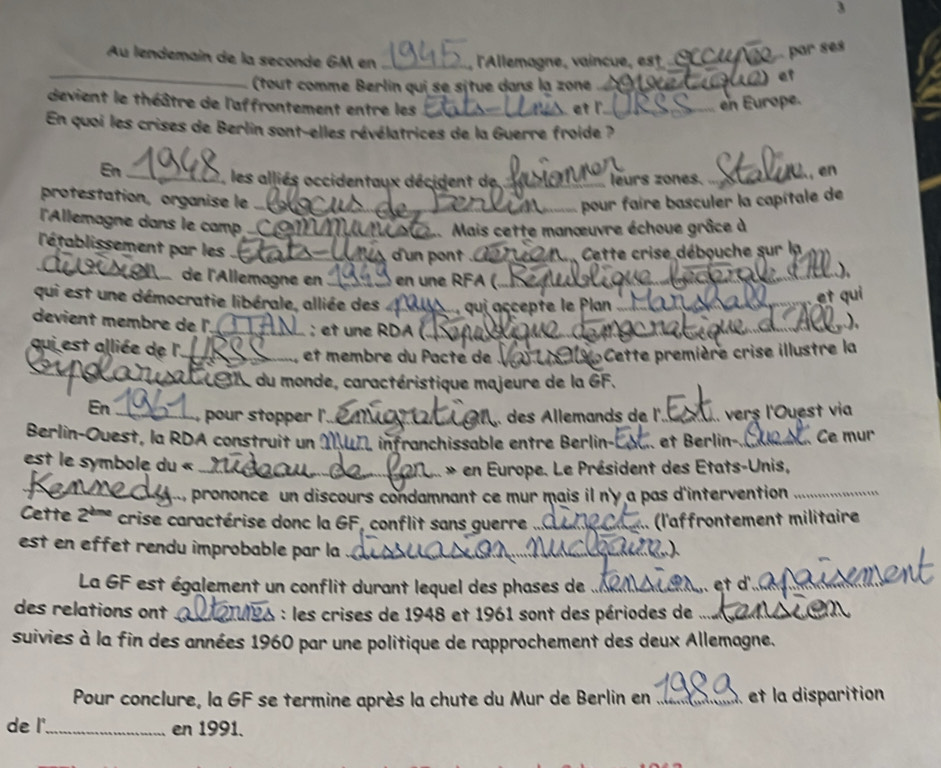 3
Au lendemain de la seconde GM en 1945, l'Allemagne, vaincue, est occupée par ses
____________ (tout comme Berlin qui se situe dans la zone soviétique) et
devient le théâtre de l'affrontement entre les Etats-Unis et l'URSS en Europe.
En quoi les crises de Berlin sont-elles révélatrices de la Guerre froide ?
En 1948, les alliés occidentaux décident de fusionner leurs zones. Staline, en
protestation, organise le blocus de Berlin pour faire basculer la capitale de
l'Allemagne dans le camp communiste. Mais cette manœuvre échoue grâce à
l'établissement par les Etats-Unis d'un pont aérien. Cette crise débouche sur la
division de l'Allemagne en 1949 en une RFA (République fédérale d'All.),
qui est une démocratie libérale, alliée des pays, qui accepte le Plan Marshall et qui
devient membre de l'OTAN : et une RDA (République démocratique d'All.),
qui est alliée de l'URSS, et membre du Pacte de Varsovie. Cette première crise illustre la
bipolarisation du monde, caractéristique majeure de la GF.
En 1961, pour stopper l'émigration des Allemands de l'Est vers l'Ouest via
Berlin-Ouest, la RDA construit un Mur infranchissable entre Berlin-Est et Berlin-Ouest. Ce mur
est le symbole du « rideau de fer » en Europe. Le Président des Etats-Unis,
Kennedy, prononce un discours condamnant ce mur mais il n'y a pas d'intervention ............
Cette 2ème crise caractérise donc la GF, conflit sans guerre direct (l'affrontement militaire
est en effet rendu improbable par la dissuasion nucléaire).
La GF est également un conflit durant lequel des phases de tension et d'apaisement
des relations ont alternés : les crises de 1948 et 1961 sont des périodes de tension
suivies à la fin des années 1960 par une politique de rapprochement des deux Allemagne.
Pour conclure, la GF se termine après la chute du Mur de Berlin en 1989 et la disparition
de l'............ en 1991.